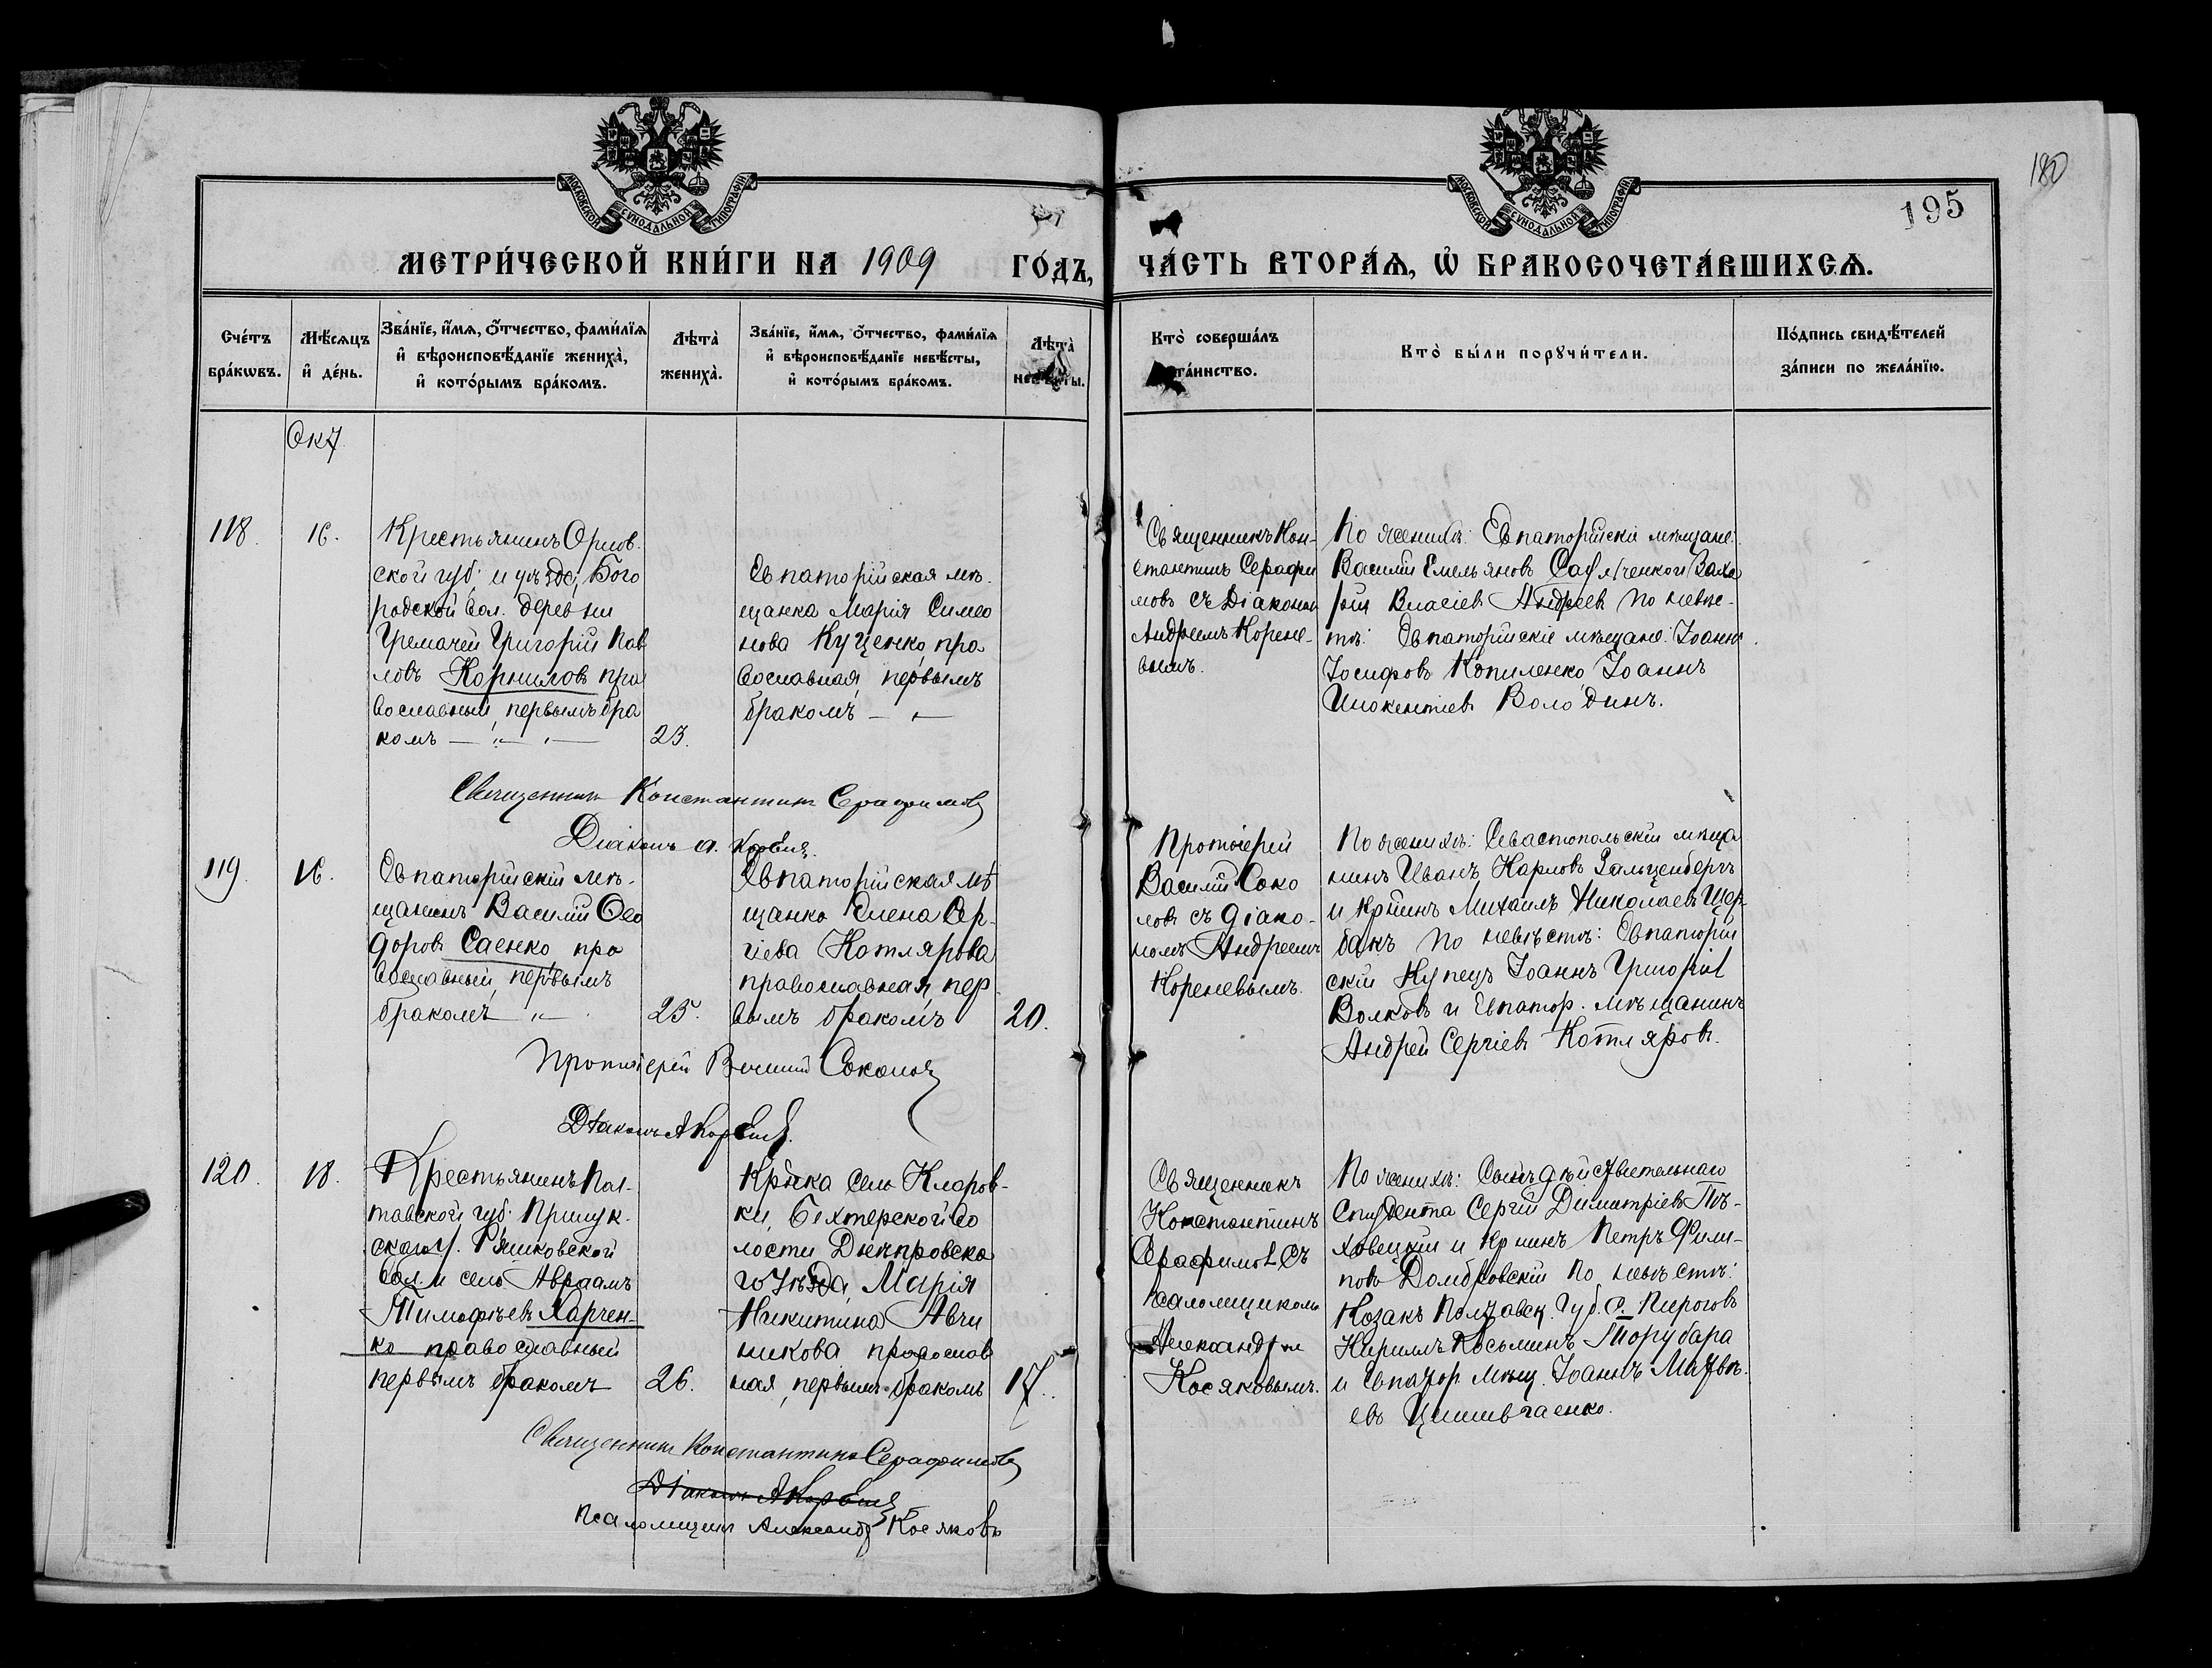 180
195
МОСКОВСКОЙ СѴНОДАЛЬНОЙ ТИПОГРАФІИ
МОСКОВСКОЙ СѴНОДАЛЬНОЙ ТИПОГРАФІИ
МЕТРИ́ЧЕСКОЙ КНИ́ГИ НА 1909 ГО́ДЪ,
ЧА́СТЬ ВТОРА́Ѧ, Ѡ҆ БРАКОСОЧЕТА́ВШИХСѦ.
Сче́тъ бра́кѡвъ.
Мѣ́сѧцъ и҆ де́нь.
Зва́нїе, и҆́мѧ, ѻ҆́тчество, фами́лїѧ
и҆ вѣроисповѣ́данїе жениха̀,
и҆ кото́рымъ бра́комъ.
Лѣта̀ жениха̀.
Зва́нїе, и҆́мѧ, ѻ҆́тчество, фами́лїѧ
и҆ вѣроисповѣ́данїе невѣ́сты,
и҆ кото́рымъ бра́комъ.
Лѣта̀ невѣ́сты.
Кто̀ соверша́лъ
та́инство.
Кто̀ бы́ли порꙋчи́тели.
По́дпись свидѣ́телей
за́писи по жела́нїю.
Окт
118.
16.
Крестьянинъ Орлов
ской губ. и уѣзда, Бого
родской вол. деревни
Гремячей Григорій Пав
ловъ Корниловъ пра
вославный, первымъ бра
комъ
23.
Евпаторійская мѣ
щанка Марія Симео
нова Куценко, пра
вославная, первымъ
бракомъ
Священникъ Кон
стантинъ Серафи
мовъ съ Діакономъ
Андреемъ Корене
вымъ.
По женихѣ: Евпаторійскіе мѣщане:
Василій Емельяновъ
Власіевъ Андреевъ по невѣ
стѣ: Евпаторійскіе мѣщане: Іоаннъ
Іосифовъ Копиленко, Іоаннъ
Инокентіевъ Володинъ.
Священникъ Константинъ Серафимовъ
Діаконъ А. Кореневъ
119.
16.
Евпаторійскій мѣ
щанинъ Василій Ѳео
доровъ Саенко, пра
вославный, первымъ
бракомъ
25.
Евпаторійская мѣ
щанка Елена Сер
гіева Котлярова
православная, пер
вымъ бракомъ
20.
Протоіерей
Василій Соко
ловъ съ діако
номъ Андреемъ
Кореневымъ.
По женихѣ: Севастопольскій мѣща
нинъ Иванъ Карловъ Зальценбергъ
и кр-нинъ Михаилъ Николаевъ Щер
бакъ По невѣстѣ: Евпаторій
скій Купецъ Іоаннъ Григорьев
Волковъ и Евпатор. мѣщанинъ
Андрей Сергіевъ Котляровъ.
Протоіерей Василій Соколовъ
Діаконъ А Кореневъ
120.
18.
Крестьянинъ Пол
тавской губ. Прилук
скаго у. Ряшковской
вол. и села Авраамъ
Тимофѣевъ Харчен
ко православный
первымъ бракомъ
26.
Кр-нка села Кларов
ки, Бехтерской во
лости Днѣпровска
го Уѣзда, Марія
Никитина Авчи
никова православ
ная, первымъ бракомъ
17.
Священникъ
Константинъ
Серафимовъ съ
псаломщикомъ
Александромъ
Косяковымъ.
По женихѣ: Сынъ дѣйствительнаго
студента Сергій Димитріевъ
и кр-нинъ Петръ Фили
повъ Домбровскій по невѣстѣ:
Козакъ Полтавск. губ. с. Пироговъ
Кириллъ Косьминъ Торубара
и Евпатор. мѣщ. Іоаннъ Матвѣ
евъ
Священникъ Константинъ Серафимовъ
Діаконъ А Кореневъ
Псаломщикъ Александръ Косяковъ